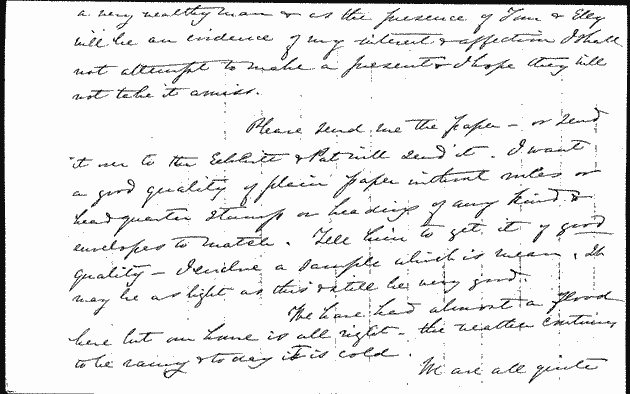 a very wealthy man & as the presence of Tom & Elly
will be an evidence of my interest & affection I shall
not attempt to make a present & I hope they will
not take it amiss.
Please send me the paper – or send
it over to the & Pat will send it. I want
a good quality of plain paper without rules or
head quarter stamp or headings of any kind &
envelopes to match. Tell him to get it of good
quality – I enclose a sample which is mean. It
may be as light as this & still be very good.
We have had almost a flood
here but our house is all right – the weather continues
to be rainy & to day it is cold.
We are all quite